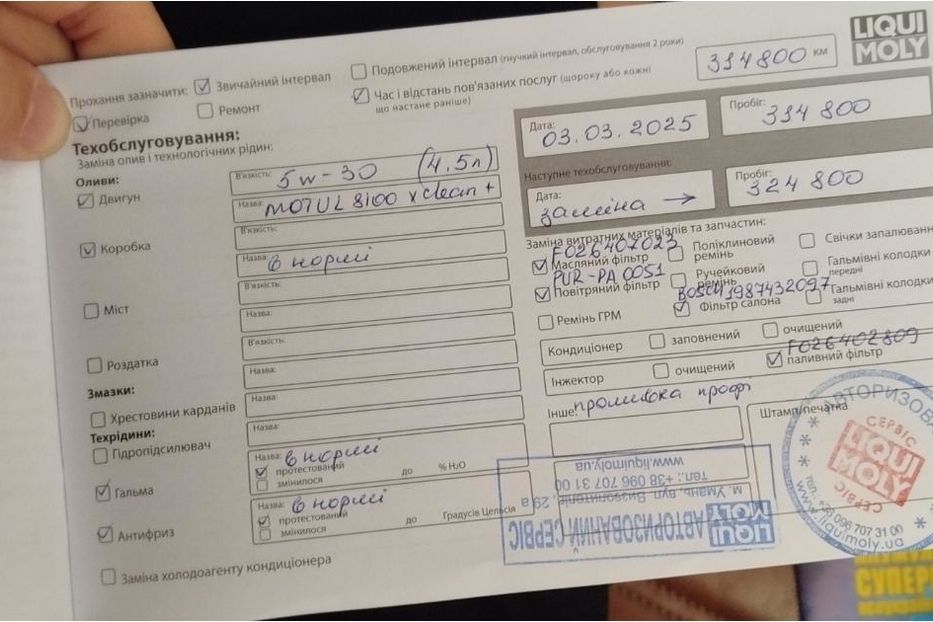 LIQUI MOLY
Прохання зазначити: Звичайний інтервал Подовжений інтервал (гнучкий інтервал, обслуговування 2 роки) 314800 км
Перевірка Ремонт Час і відстань пов'язаних послуг (щороку або кожні
що настане раніше)
Техобслуговування:
Заміна олив і технологічних рідин:
Дата: 03.03.2025 Пробіг: 314 800
Наступне техобслуговування:
Дата: заміна → Пробіг: 324 800
Оливи:
Двигун
В'язкість: 5w-30 (4.5л)
Назва: MOTUL 8100 x clean +
Коробка
В'язкість:
Назва: в нормі
Міст
В'язкість:
Назва:
Роздатка
В'язкість:
Назва:
Змазки:
Хрестовини карданів
Назва:
Техрідини:
Гідропідсилювач
Назва:
Гальма
Назва: в нормі
протестований
змінилося до % H₂O
Антифриз
Назва: в нормі
протестований
змінилося до Градусів Цельсія
Заміна холодоагенту кондиціонера
Заміна витратних матеріалів та запчастин:
F026407023
Масляний фільтр Поліклиновий ремінь Свічки запалюванн
PUR-PA 0051
Повітряний фільтр Ручейковий ремінь Гальмівні колодки передні
BOSCH 1987432097
Ремінь ГРМ Фільтр салона Гальмівні колодки задні
Кондиціонер заповнений очищений
F026402809
Інжектор очищений паливний фільтр
Інше: промивка проф
Штамп/печатка
LIQUI MOLY АВТОРИЗОВАНИЙ СЕРВІС
м. Умань, вул. Визволителів, 29 а
тел.: +38 096 707 31 00
www.liquimoly.ua
АВТОРИЗОВА
СЕРВІС
LIQUI MOLY
СЕРВІС
тел. +38 096 707 31 00
www.liquimoly.ua
СУПЕР